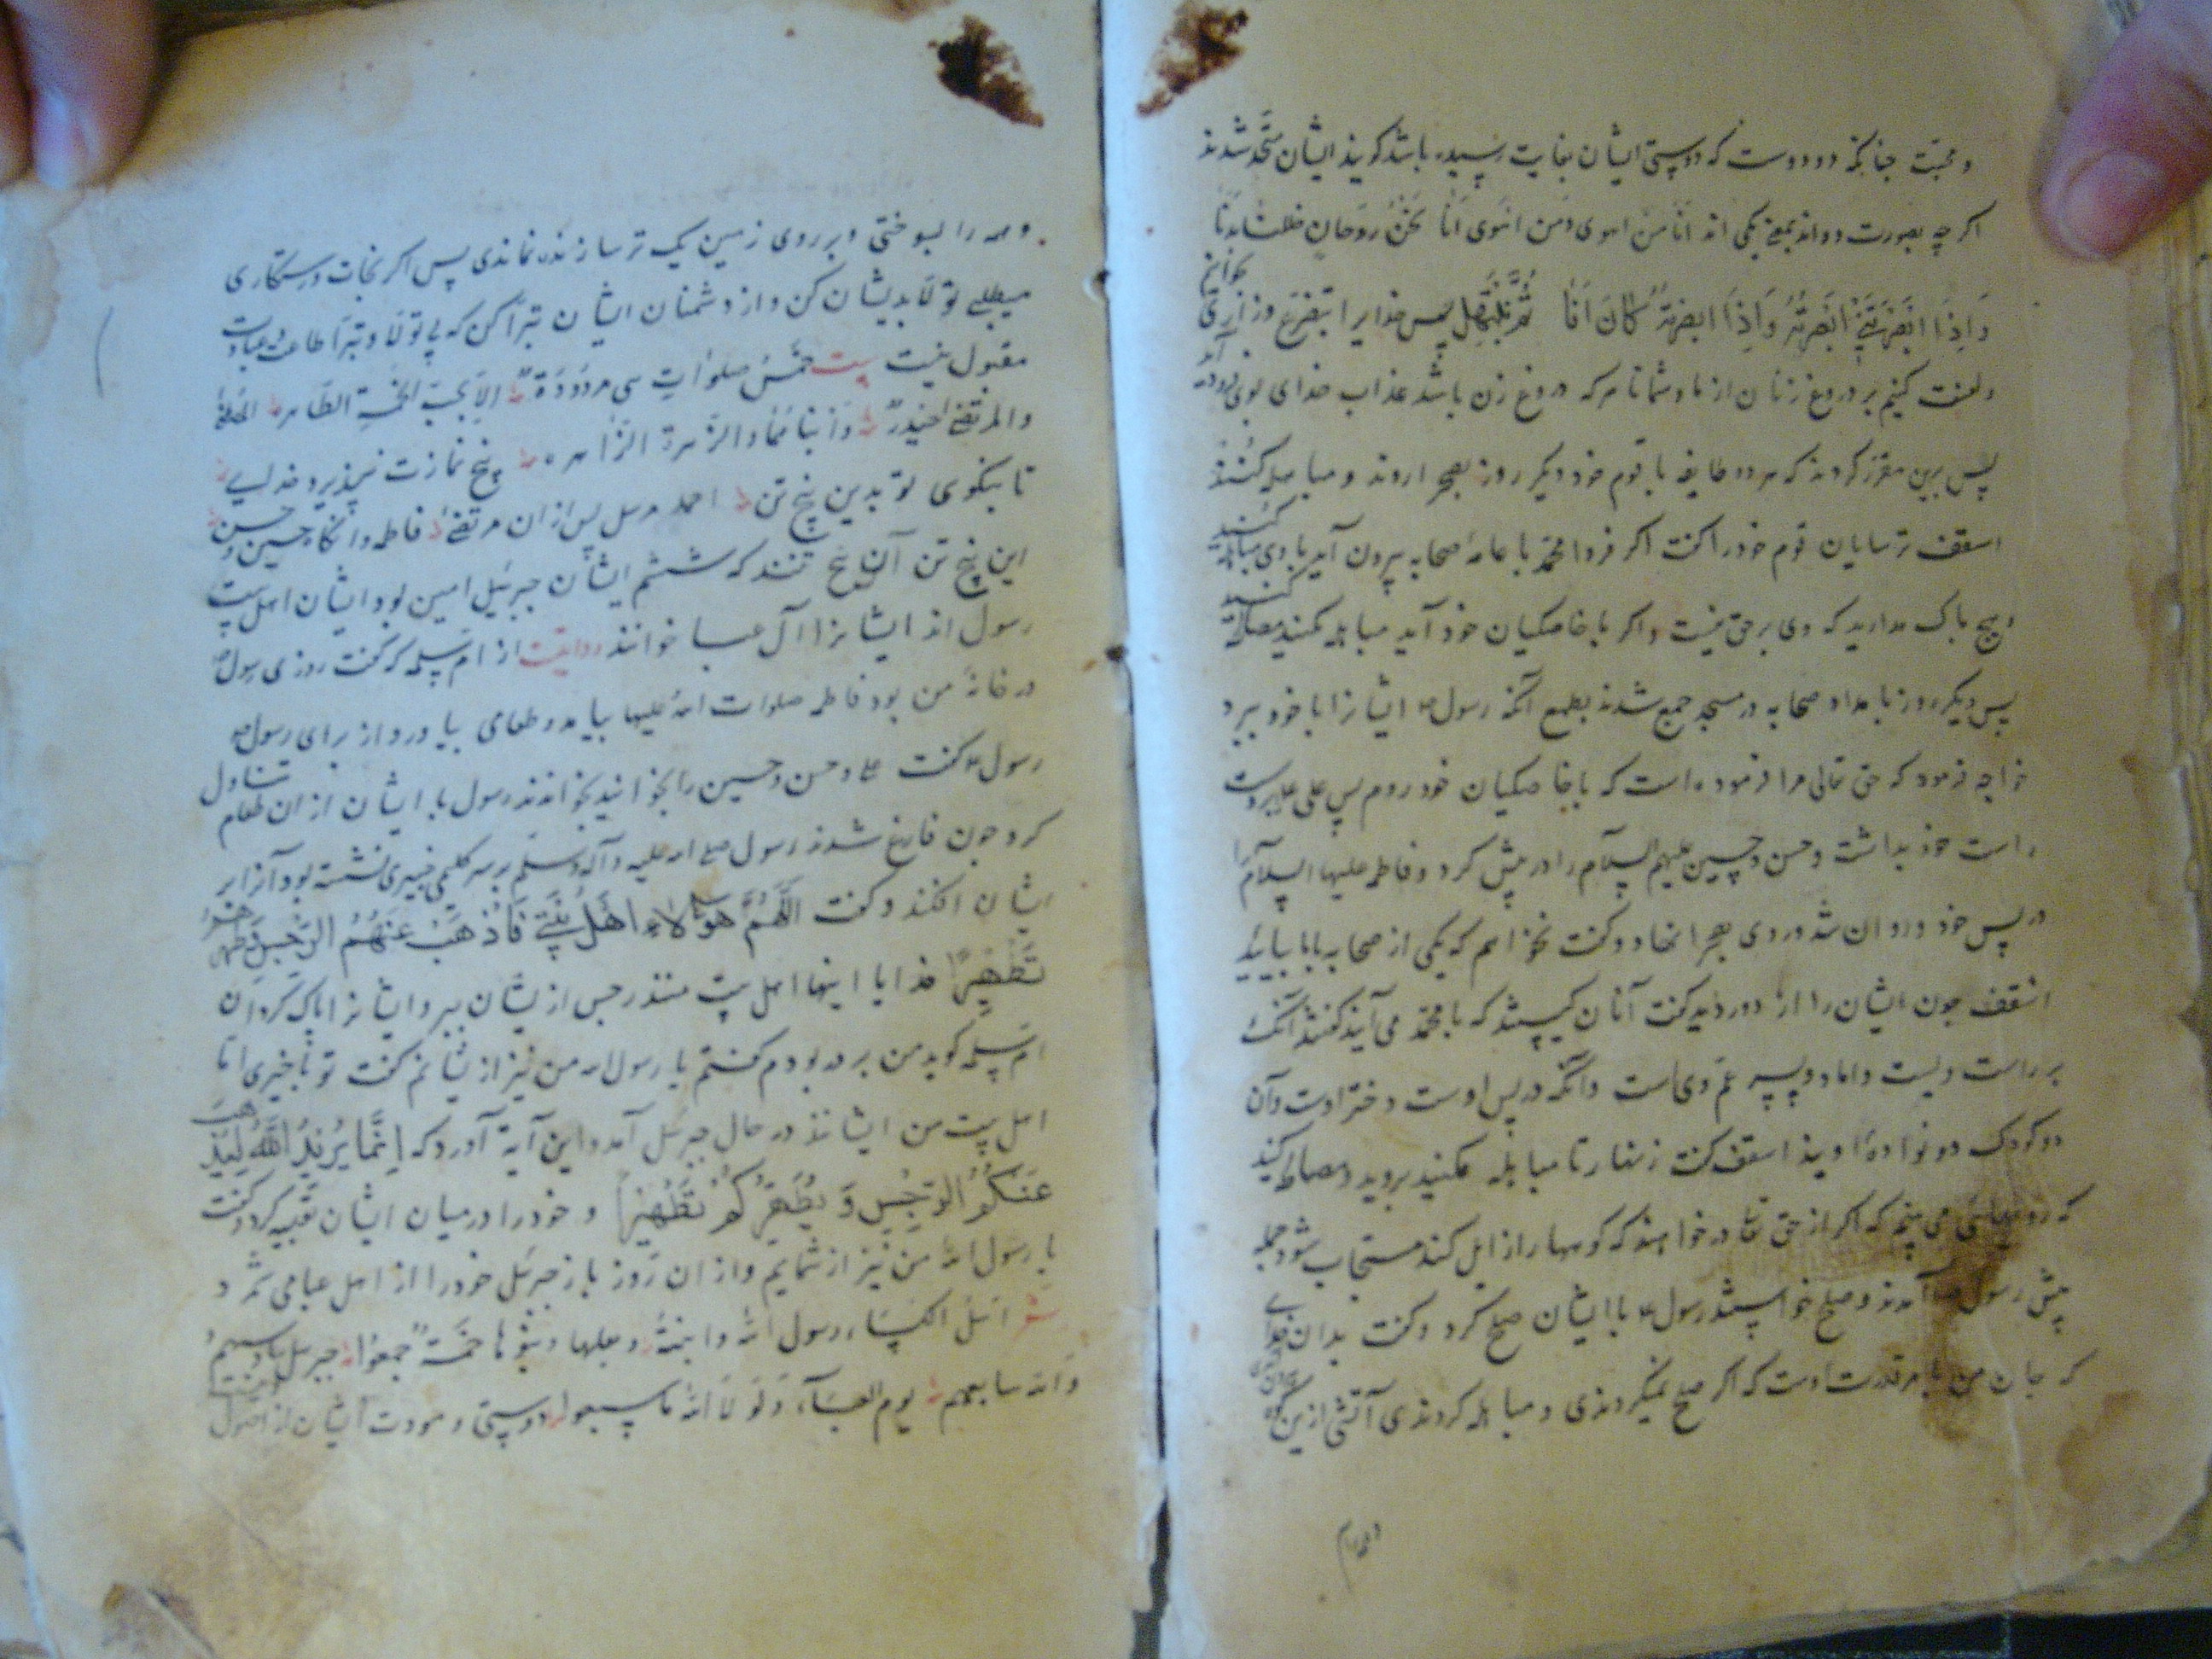 و محبّت جنانکه دو دوست که دوستی ایشان بغایت رسیده باشد کویند ایشان متّحد شدند
اکرچه بصورت دواند بمعنی یکی اند انا من اهوی و من اهوی انا نحن روحان حللنا بدنا
وَاِذَا ابصَرتَنِی اَبصَرتَهُ وَاِذَا ابصَرتَهُ کَانَ اَنَا ثُمَّ نَبْتَهِلْ پس خدایرا بتضرع و زاری بخوانیم
و لعنت کنیم بر دروغ زنان از ما و شما تا هرکه دروغ زن باشد عذاب خدای بوی فرود آید
پس برین مقرر کردند که هر دو طایفه با قوم خود دیکر روز بصحرا روند و مباهله کنند
اسقف ترسایان قوم خود را کفت اکر فردا محمّد با عامهٔ صحابه بیرون آید با وی مباهله کنید
و هیچ باک مدارید که وی بر حق نیست و اکر با خاصکیان خود آید مباهله مکنید مصالحه کنید
پس دیکر روز بامداد صحابه در مسجد جمع شدند بطمع آنکه رسول ایشانرا با خود ببرد
خواجه فرمود که حق تعالی مرا فرموده است که با خاصکیان خود روم پس علی را بر دست
راست خود بداشت و حسن و حسین علیهم السلام را در پیش کرد و فاطمه علیها السلام را
در پس خود و روان شد و روی بصحرا نهاد و کفت نخواهم که یکی از صحابه با ما بیاید
اسقف چون ایشان را از دور دید کفت آنان کیستند که با محمّد می آیند کفتند آنک
بر راست ویست داماد و پسر عم وی است و آنکه در پس اوست دختر اوست و آن
دو کودک دو نوادهٔ اویند اسقف کفت زنهار تا مباهله مکنید بروید و مصالحه کنید
که می بینم که اکر از حق تعا درخواهند که کوهها را زایل کند مستجاب شود جمله
پیش رسول آمدند و صلح خواستند رسول با ایشان صلح کرد و کفت بدان خدای
که جان من بامر قدرت اوست که اکر صلح نمیکردندی و مباهله کردندی آتشی ازین
و همه را بسوختی و بر روی زمین یک ترسا زنده نماندی پس اکر نجات و رستکاری
میطلبی تولّا بدیشان کن و از دشمنان ایشان تبرّا کن که بی تولّا و تبرّا طاعت و عبادت
مقبول نیست بیت خمس صلوات سی مردودة الا بحب الخمسة الطاهره المصطفی
والمرتضی حیدر وابناهما والزهرة الزاهره پنج نمازت نپذیرد خدای
تا بنکوی تو بدین پنج تن احمد مرسل پس ازان مرتضی فاطمه وانکاه حسین و حسن
این پنج تن آن پنج تنند که ششم ایشان جبرئیل امین بود ایشان اهل بیت
رسول اند ایشانرا آل عبا خوانند روایتست از ام سلمه که کفت روزی رسول
در خانهٔ من بود فاطمه صلوات الله علیها بیامد و طعامی بیاورد از برای رسول
رسول کفت علی و حسن و حسین را بخوانید بخواندند رسول با ایشان از ان طعام تناول
کرد جون فارغ شدند رسول صلی الله علیه وآله وسلم بر سر کلیمی خیبری نشسته بود آنرا بر
ایشان افکند و کفت اَللّهُمَّ هَؤُلاءِ اَهْلُ بَیْتِی فَاذْهَبْ عَنْهُمُ الرِّجْسَ وَطَهِّرْهُمْ
تَطْهِیرًا خدایا اینها اهل بیت منند رجس ازیشان ببر و ایشانرا پاک کردان
ام سلمه کوید من بر در بودم کفتم یا رسول الله من نیز ازیشانم کفت تو با خیری اما
اهل بیت من ایشانند در حال جبرئیل آمد و این آیة آورد که اِنَّمَا یُرِیْدُ اللّهُ لِیُذْهِبَ
عَنْکُمُ الرِّجْسَ وَ یُطَهِّرَکُمْ تَطْهِیْرًا و خود را درمیان ایشان تعبیه کرد و کفت
یا رسول الله من نیز از شمایم و ازان روز باز جبرئیل خود را از اهل عبا می شمرد
شعر اهل الکساء رسول الله وابنته وبعلها وبنوها خمسة جمعوا جبریل سادسهم
والله سابعهم یوم العبآء ولولا الله ما سمعوا دوستی و مودت ایشان از اصول